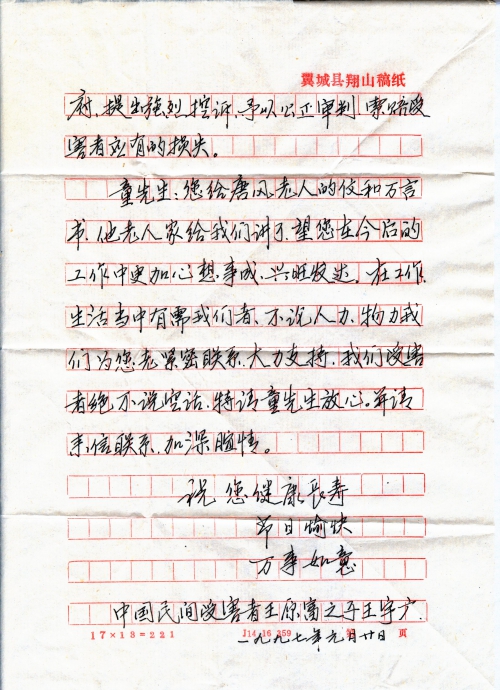 翼城县翔山稿纸
府,提出强烈控诉,予以公正审判 索赔受
害者应有的损失。
童先生:您给唐风老人的信和万言
书,他老人家给我们讲了,望您在今后的
工作中更加心想事成,兴旺发达。在工作,
生活当中有需我们者,不说人力、物力我
们为您老紧密联系,大力支持,我们受害
者绝不说空话,特请童先生放心。并请
来信联系,加深友情。
祝 您健康长寿
节日愉快
万事如意
中国民间受害者王原富之子王宇广.
17×13=221 J14 16 359 页
一九九七年元月廿日